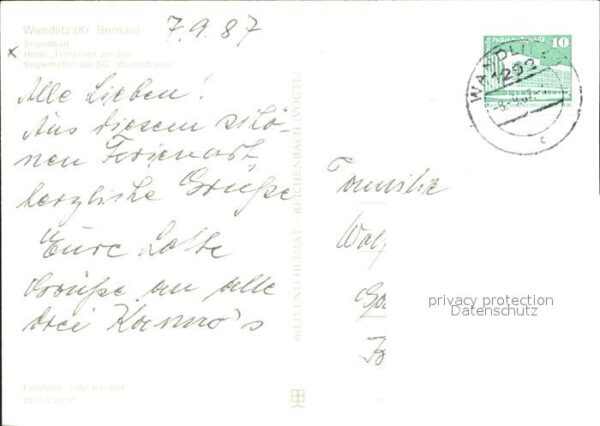 Wandlitz (Kr. Bernau)
Strandbad
Hotel „Terrassen am See"
Seglerhafen der SG „Wandlitzsee"
7.9.87
Alle Lieben!
Aus diesem schö-
nen Ferienort
herzliche Grüße
Eure Lotte
Grüße an alle
drei
BILD UND HEIMAT · REICHENBACH (VOGTL)
10
WANDLITZ
1292
c
Familie
Wolf
privacy protection
Datenschutz
Farbfotos: